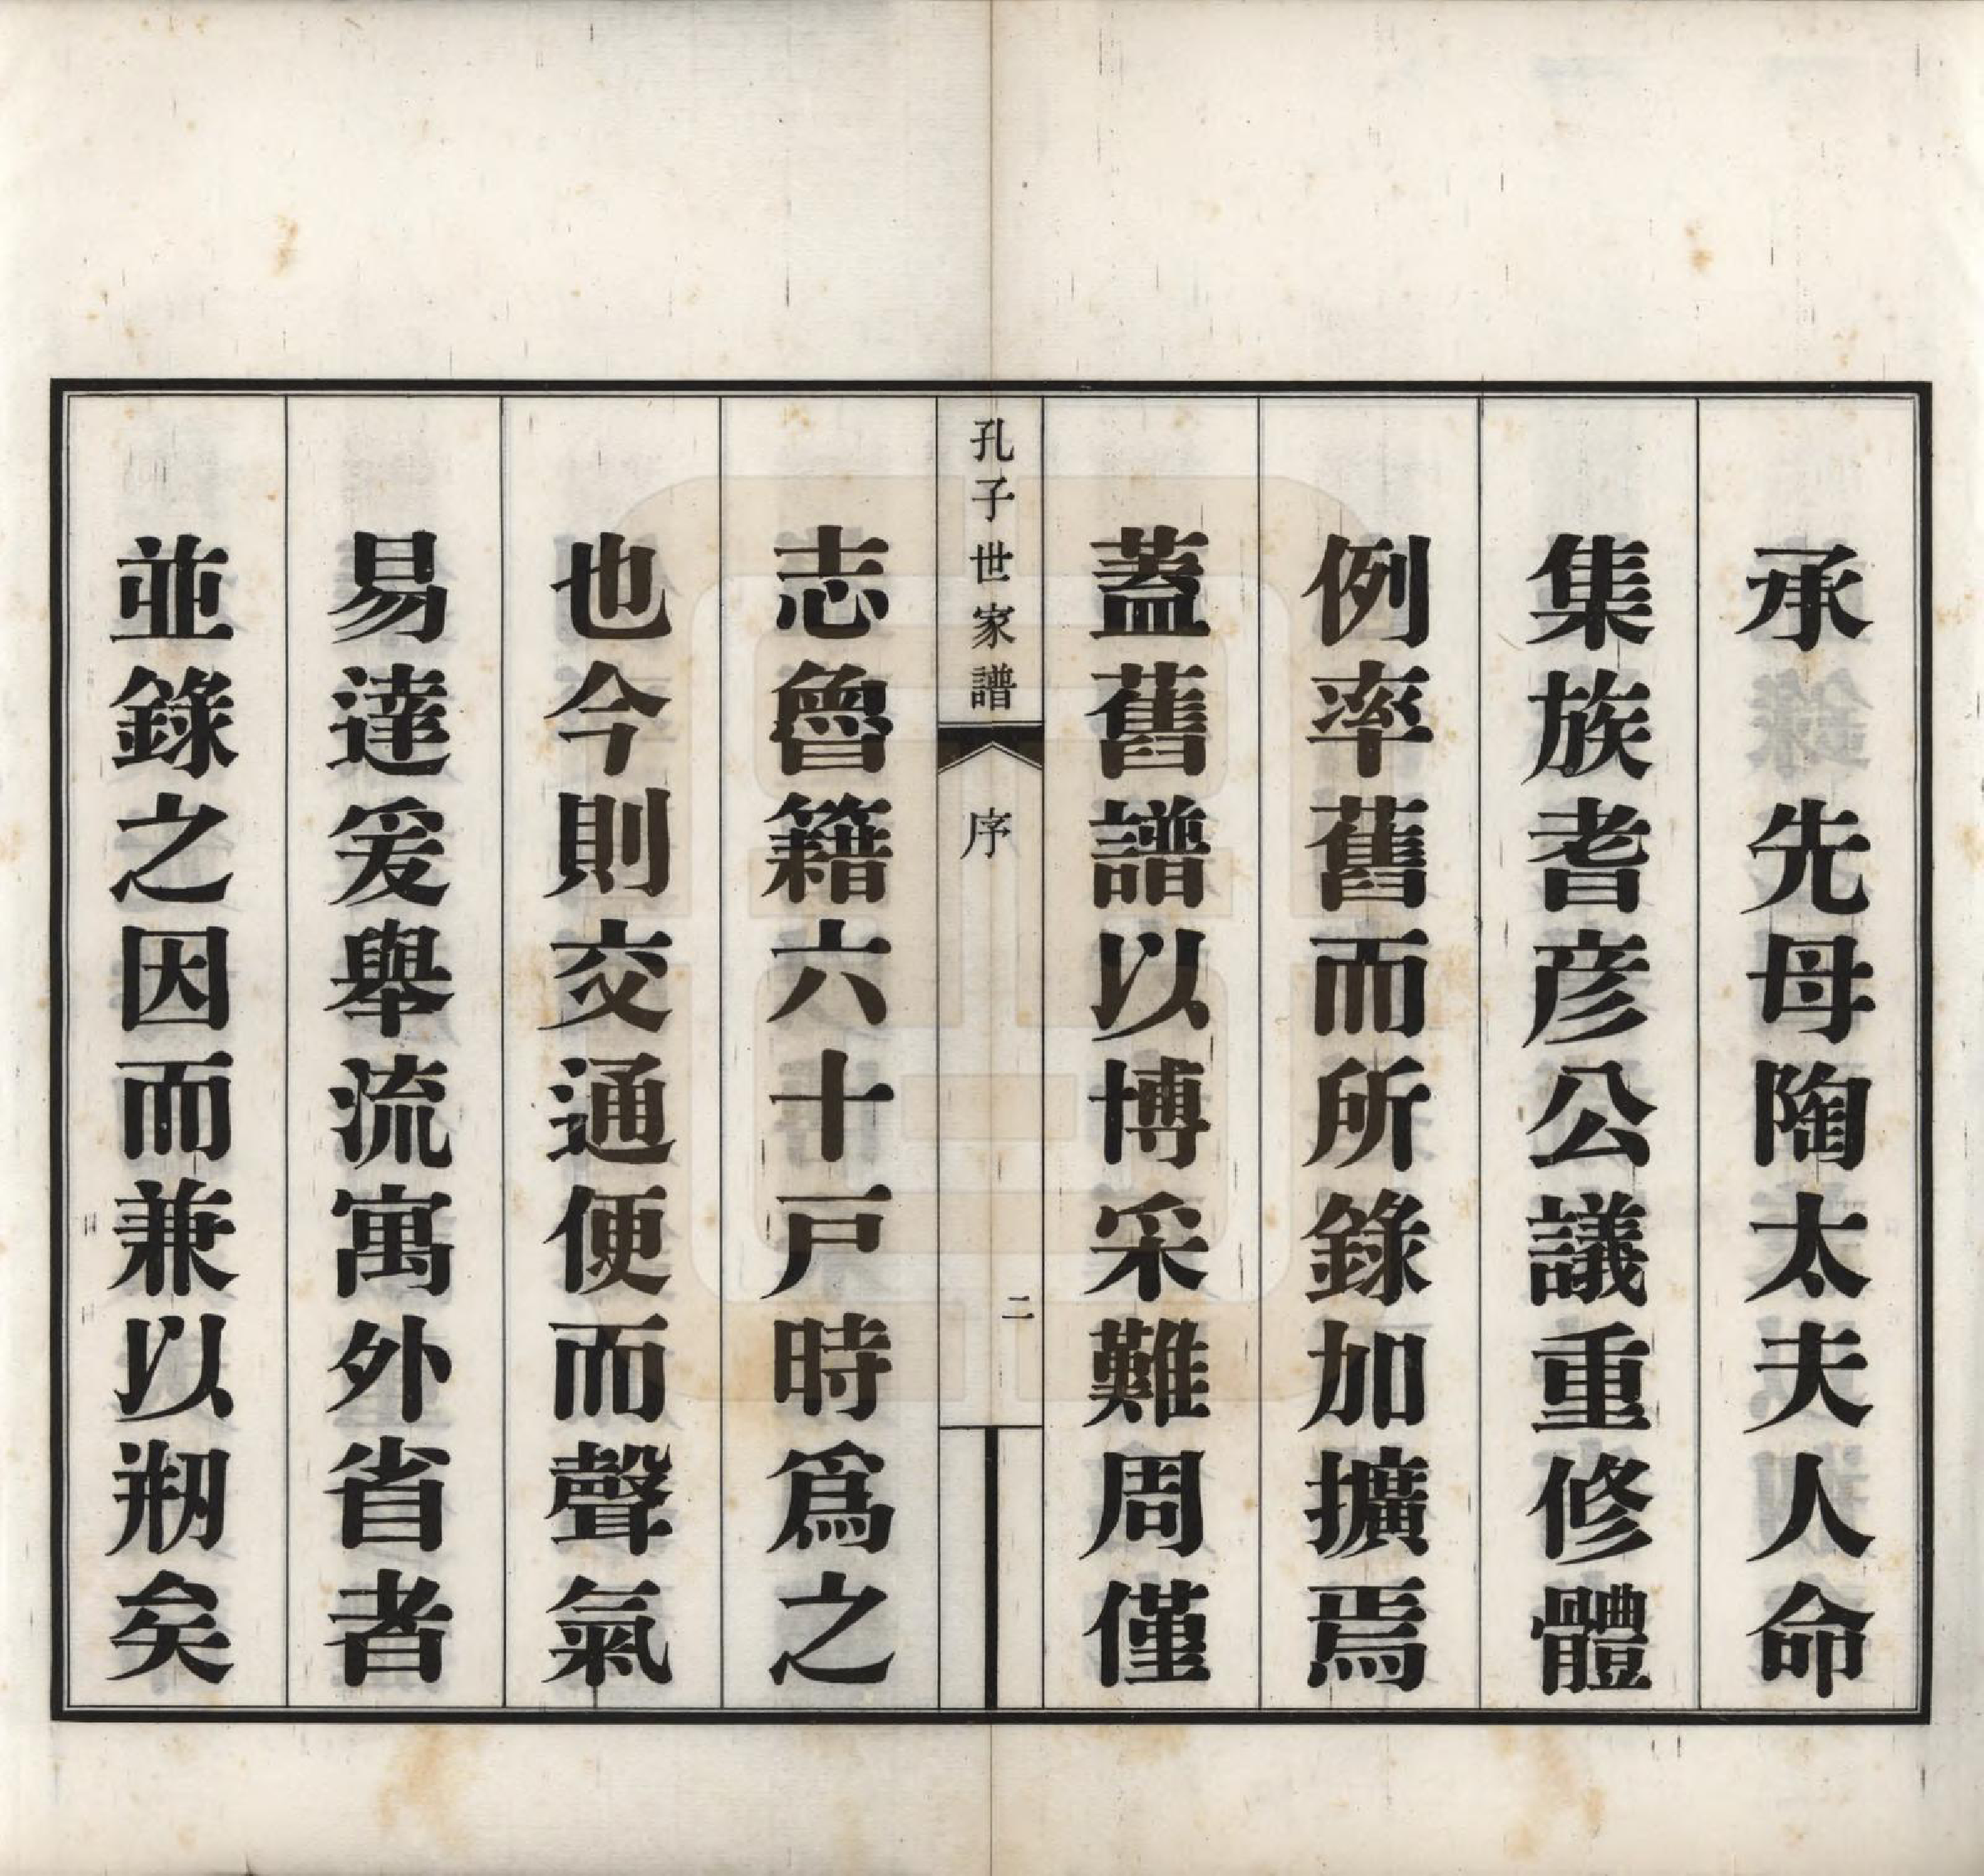 承　先母陶太夫人命
集族耆彦公議重修體
例率舊而所錄加擴焉
蓋舊譜以博采難周僅
孔子世家譜
序
二
志魯籍六十戶時爲之
也今則交通便而聲氣
易達爰舉流寓外省者
並錄之因而兼以剏矣